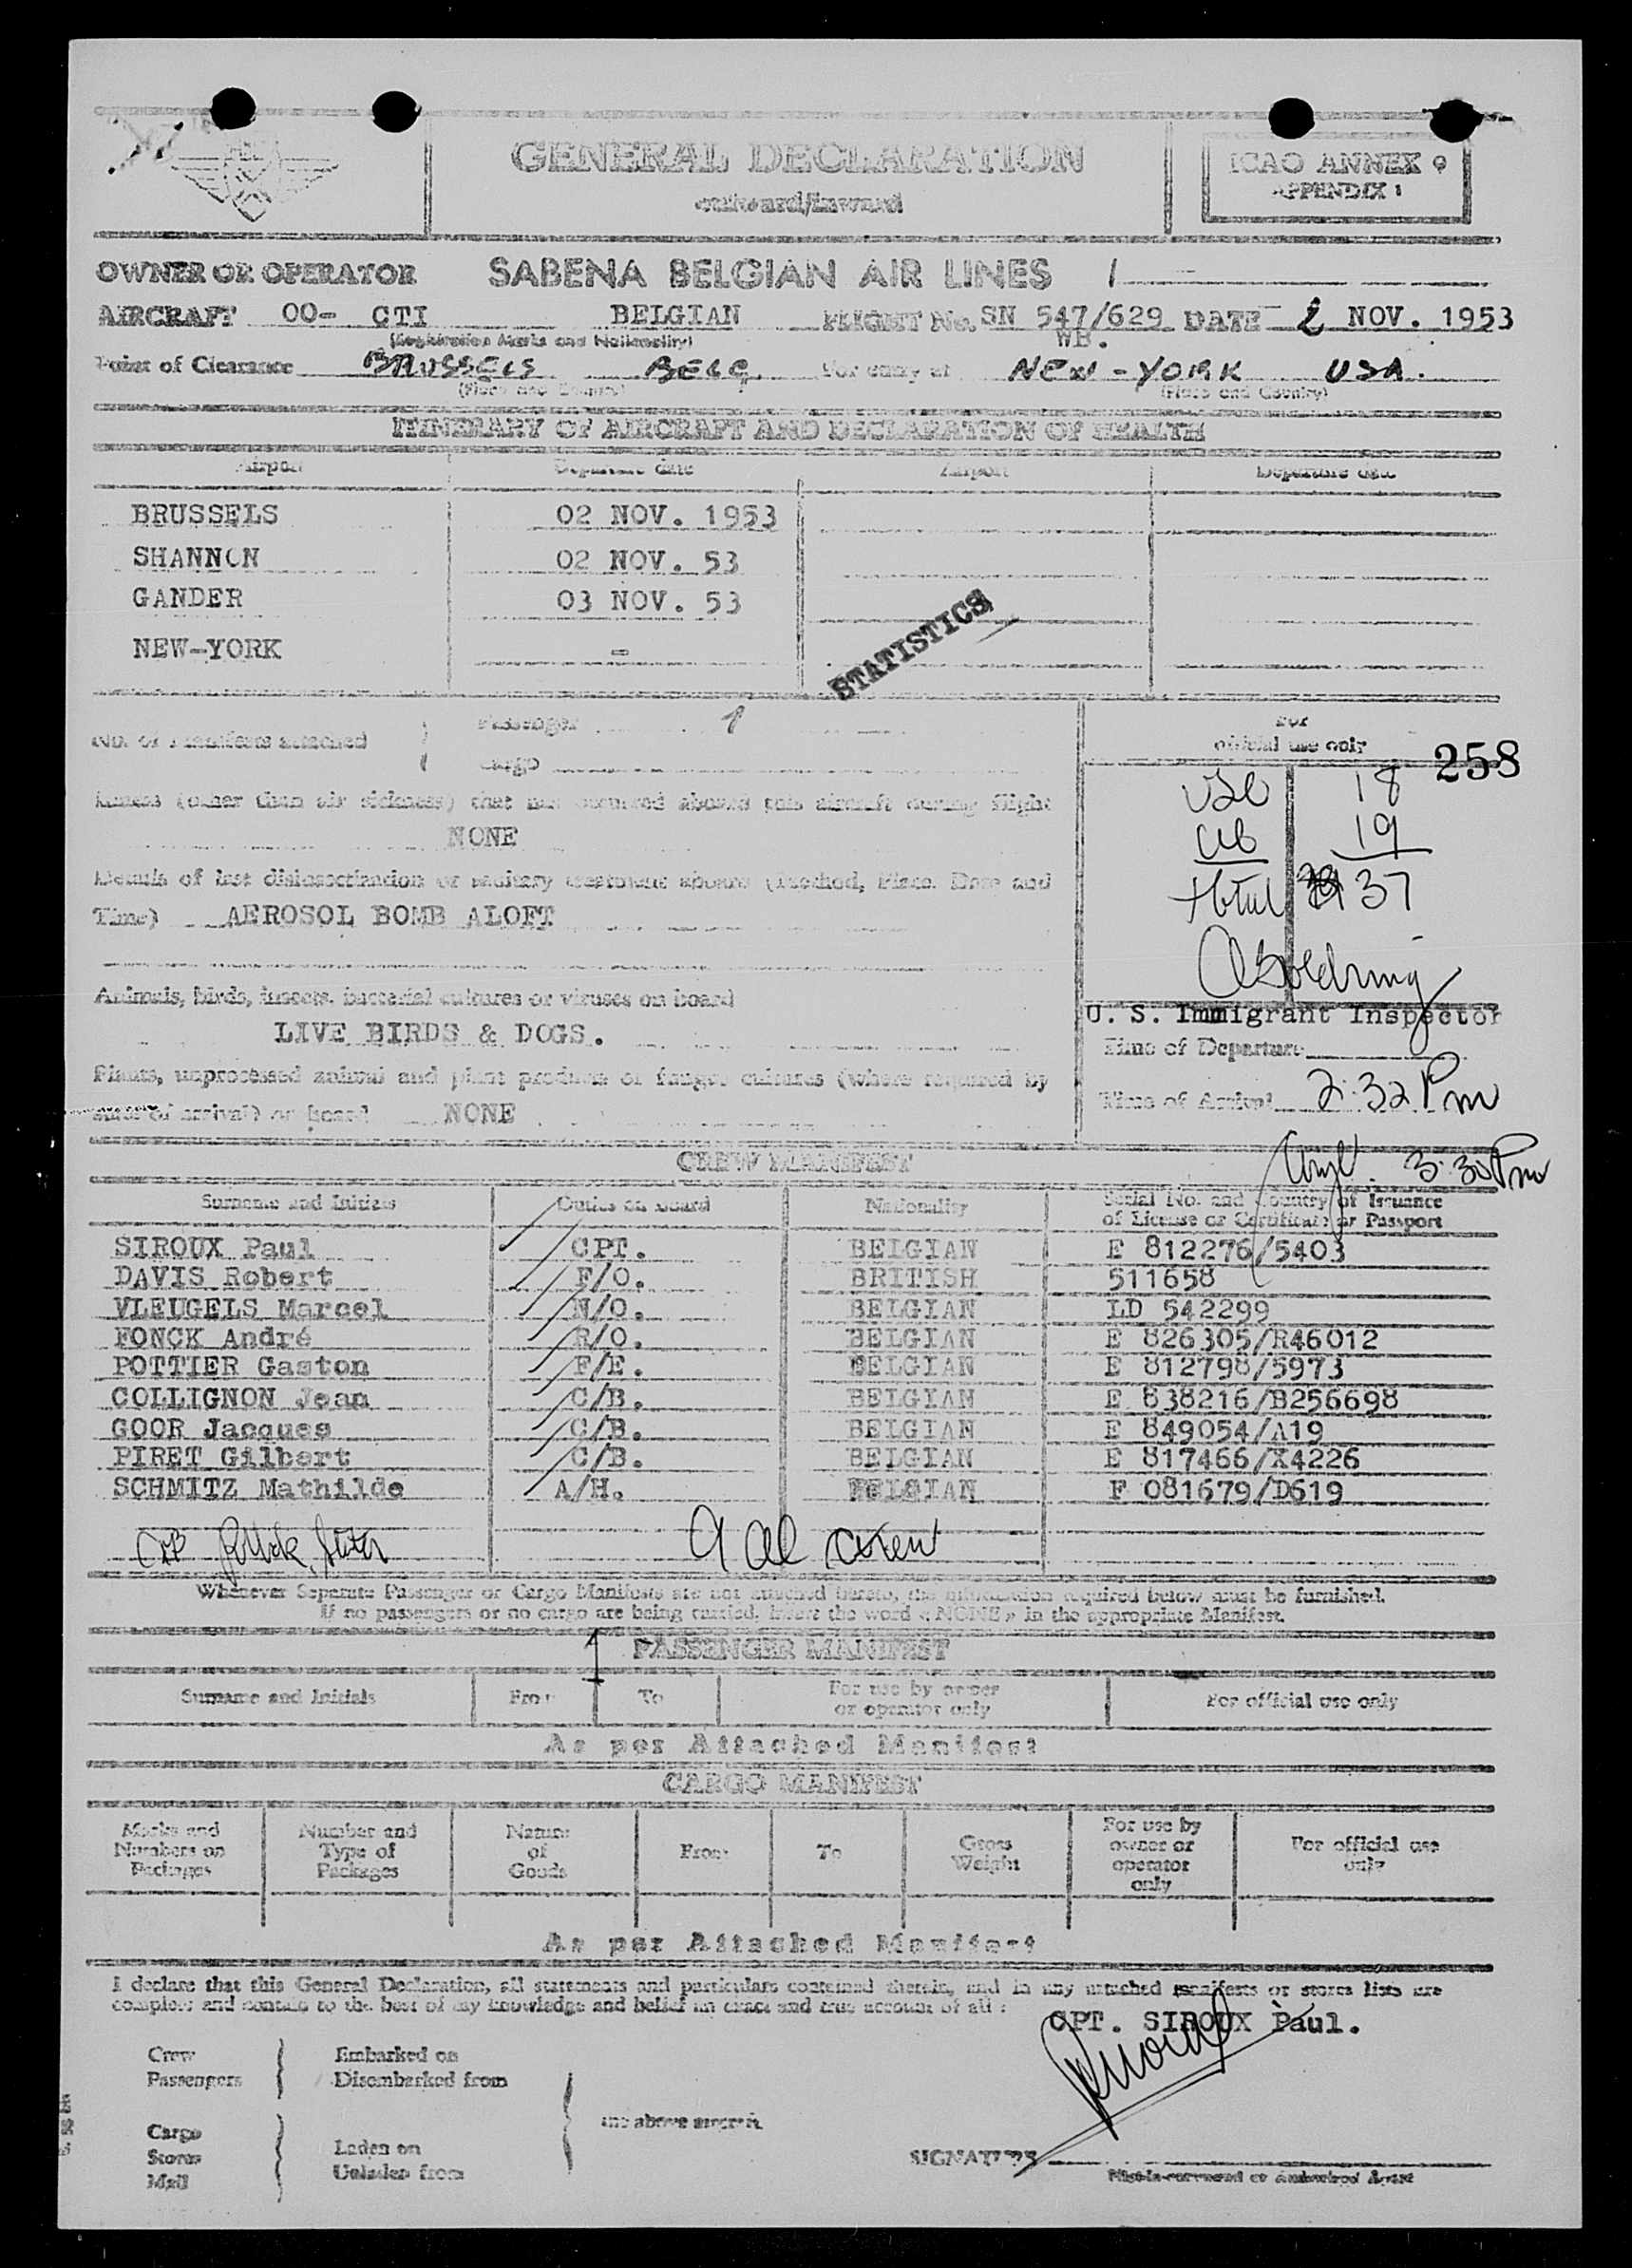 GENERAL DECLARATION
outward/inward
ICAO ANNEX 9
APPENDIX 1
OWNER OR OPERATOR SABENA BELGIAN AIR LINES
AIRCRAFT OO- CTI BELGIAN FLIGHT No. SN 547/629 DATE 2 NOV. 1953
(Registration Marks and Nationality) WB.
Point of Clearance BRUSSELS BELG. For entry at NEW-YORK USA.
(Place and Country) (Place and Country)
ITINERARY OF AIRCRAFT AND DECLARATION OF HEALTH
Airport Departure date Airport Departure date
BRUSSELS 02 NOV. 1953
SHANNON 02 NOV. 53
GANDER 03 NOV. 53
NEW-YORK -
STATISTICS
No. of Manifests attached
Passenger 1
Cargo
For
official use only
258
USC 18
AB 19
total 37
Illness (other than air sickness) that has occurred aboard this aircraft during flight
NONE
Details of last disinsectization or sanitary treatment aboard (Method, Place, Date and
Time) AEROSOL BOMB ALOFT
Animals, birds, insects, bacterial cultures or viruses on board
LIVE BIRDS & DOGS.
U. S. Immigrant Inspector
Time of Departure
Plants, unprocessed animal and plant products or fungus cultures (where required by
state of arrival) on board NONE
Time of Arrival 2:32 Pm
3:30 Pm
CREW MANIFEST
Surname and Initials Duties on Board Nationality Serial No. and Country of Issuance
of License or Certificate or Passport
SIROUX Paul CPT. BELGIAN E 812276/5403
DAVIS Robert F/O. BRITISH 511658
VLEUGELS Marcel N/O. BELGIAN LD 542299
FONCK André R/O. BELGIAN E 826305/R46012
POTTIER Gaston F/E. BELGIAN E 812798/5973
COLLIGNON Jean C/B. BELGIAN E 838216/B256698
GOOR Jacques C/B. BELGIAN E 849054/A19
PIRET Gilbert C/B. BELGIAN E 817466/X4226
SCHMITZ Mathilde A/H. BELGIAN F 081679/D619
9 al crew
Whenever Separate Passenger or Cargo Manifests are not attached hereto, the information required below must be furnished.
If no passengers or no cargo are being carried, insert the word « NONE » in the appropriate Manifest.
PASSENGER MANIFEST
Surname and Initials From To For use by owner
or operator only For official use only
As per Attached Manifest
CARGO MANIFEST
Marks and
Numbers on
Packages
Number and
Type of
Packages
Nature
of
Goods
From
To
Gross
Weight
For use by
owner or
operator
only
For official use
only
As per Attached Manifest
I declare that this General Declaration, all statements and particulars contained therein, and in any attached manifests or stores lists are
complete and contain to the best of my knowledge and belief an exact and true account of all :
CPT. SIROUX Paul.
Crew
Passengers
Embarked on
Disembarked from
the above aircraft.
Cargo
Stores
Mail
Laden on
Unladen from
SIGNATURE
Pilot-in-command or Authorized Agent